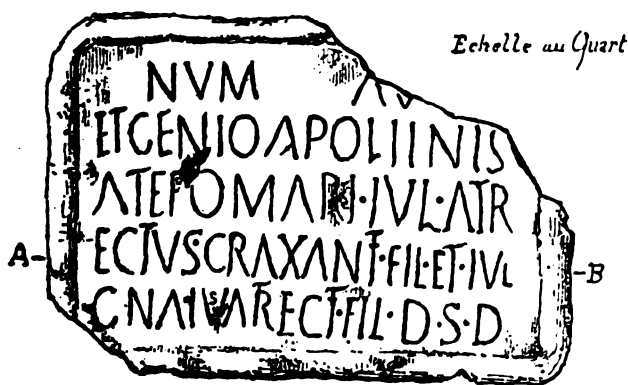 Echelle au Quart
NVM
ETGENIOAPOLIINIS
ATEPOMARI·IVL·ATR
ECTVS·CRAXANT·FIL·ET·IVL
FIL·D·S·D
A B